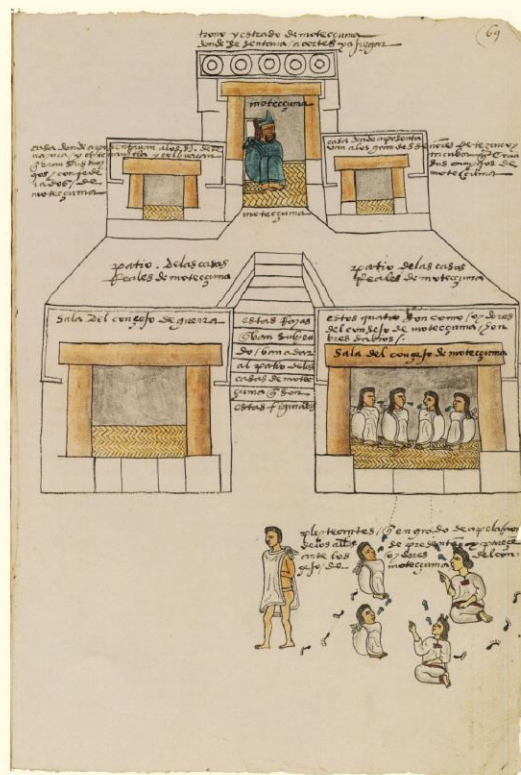 69
trono y estrado de motecçuma
donde se sentava a cortes y a juzgar
motecçuma
motecçuma
casa donde aposentavan
casa donde aposenta
van a los grandes señores de tezcuco y
tacuba
motecçuma
motecçuma
patio . de las casas
Reales de motecçuma
patio de las casas
Reales de motecçuma
sala del consejo de guerra
estas Rayas
q̃ van subien
do / van a dar
al patio de las
casas de mote
cçuma q̃ son
estas figuradas
estos quatro son como / oydores
del consejo de motecçuma / hon
bres sabios /.
sala del consejo de motecçuma
pleyteantes / q̃ en grado de apelacion
de los alcaldes se presentan y parecen
ante los oydores del con
sejo / de motecçuma